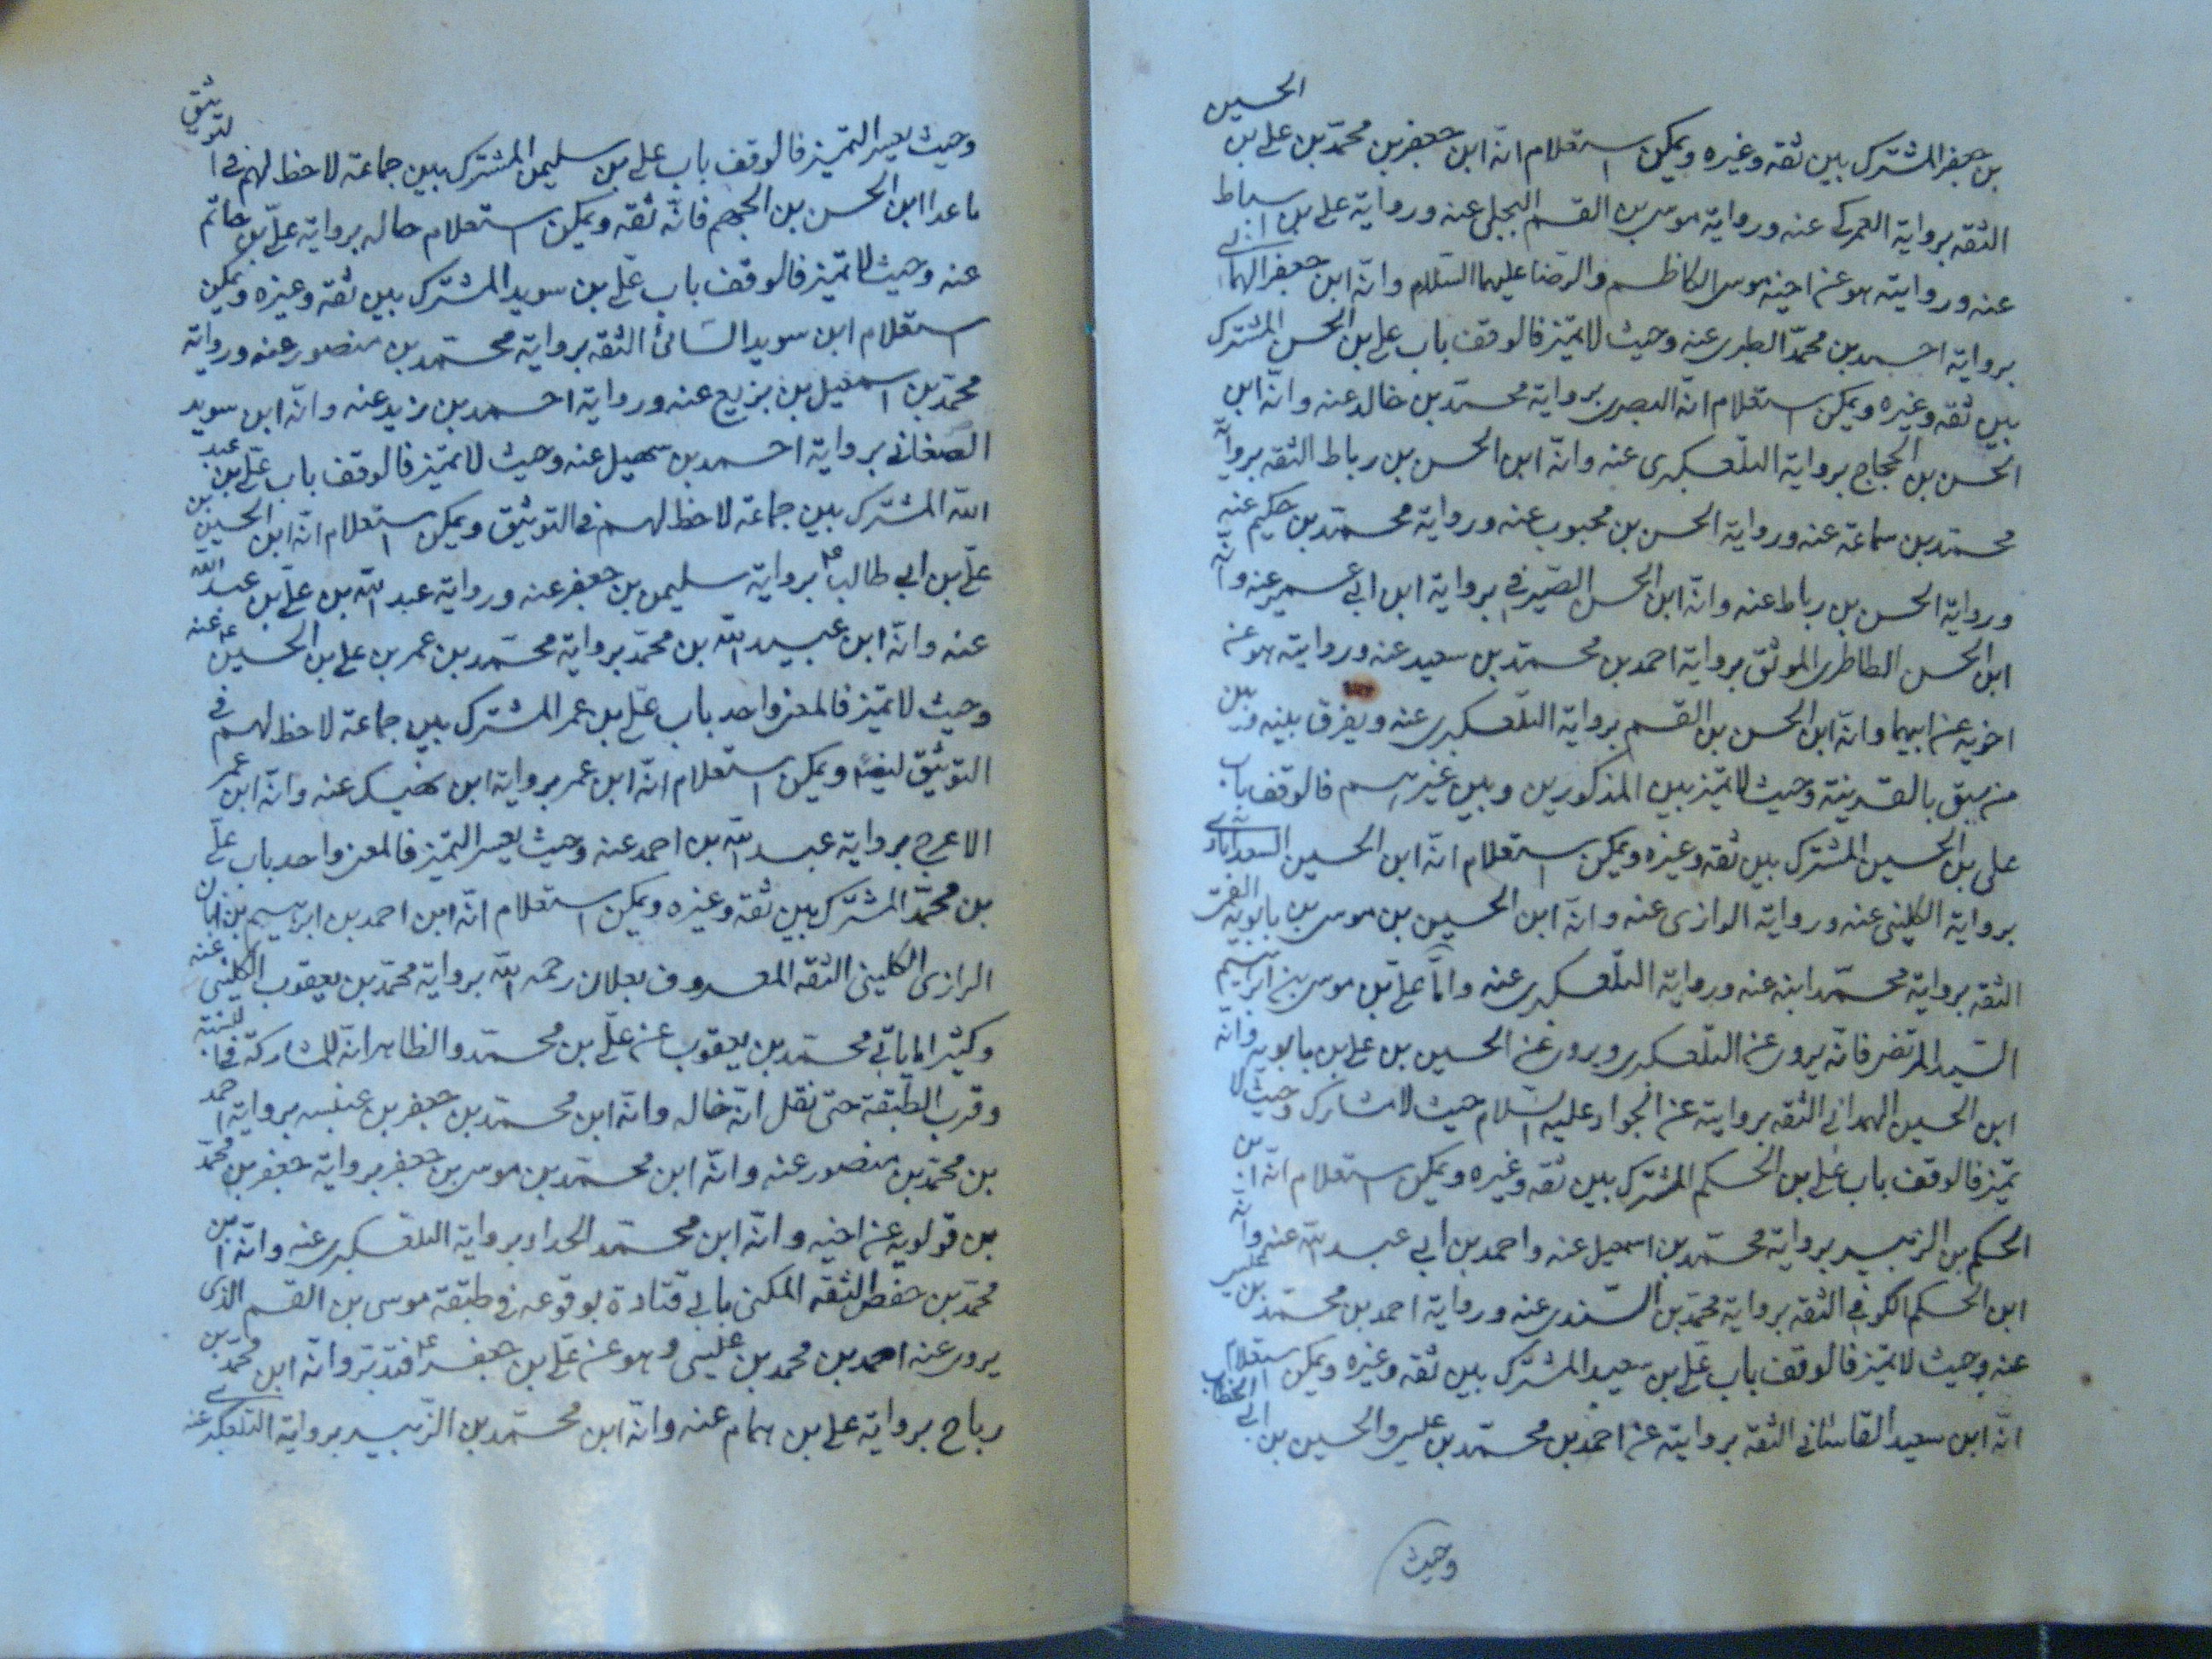 بن جعفر المشترك بين ثقه وغيره ويمكن استعلام انّه ابن جعفر بن محمّد بن على بن الحسين
الثقه برواية العمركى عنه ورواية موسى بن القسم البجلى عنه ورواية على بن اسباط
عنه وروايته هو عن اخيه موسى الكاظم والرضا عليهما السّلام وانّه ابن جعفر الهمانى
برواية احمد بن محمّد الطبرى عنه وحيث لا تميّز فالوقف باب على بن الحسن المشترك
بين ثقه وغيره ويمكن استعلام انّه البصرى برواية محمّد بن خالد عنه وانّه ابن
الحسن بن الحجاج برواية التلّعكبرى عنه وانّه ابن الحسن بن رباط الثقه برواية
محمّد بن سماعة عنه ورواية الحسن بن محبوب عنه ورواية محمّد بن حكيم عنه
ورواية الحسن بن رباط عنه وانّه ابن الحسن الصّيرفى برواية ابن ابى عمير عنه وانّه
ابن الحسن الطاطرى الموثق برواية احمد بن محمّد بن سعيد عنه وروايته هو عن
اخويه عن ابيهما وانّه ابن الحسن بن القسم برواية التلّعكبرى عنه ويفرق بينه وبين
من سبق بالقرينة وحيث لا تميّز بين المذكورين وبين غيرهم فالوقف باب
على بن الحسين المشترك بين ثقه وغيره ويمكن استعلام انّه ابن الحسين السعدابادى
برواية الكلينى عنه ورواية الزازى عنه وانّه ابن الحسين بن موسى بن بابويه القمّى
الثقه برواية محمّد ابنه عنه ورواية التلّعكبرى عنه وامّا علىّ بن موسى بن ابراهيم
السّيد المرتضى فانّه يروى عن التلّعكبرى ويروى عن الحسين بن على بن بابويه وانّه
ابن الحسين الهمدانى الثقه بروايته عن الجواد عليه السّلام حيث لا مشارك وحيث لا
تميّز فالوقف باب على بن الحكم المشترك بين ثقه وغيره ويمكن استعلام انّه ابن
الحكم بن الزبير برواية محمّد بن اسمعيل عنه واحمد بن ابى عبد الله عنه وانّه
ابن الحكم الكوفى الثقه برواية محمّد بن السّندى عنه ورواية احمد بن محمّد بن عيسى
عنه وحيث لا تميّز فالوقف باب علىّ بن سعيد المشترك بين ثقه وغيره ويمكن استعلام
انّه ابن سعيد القاسانى الثقه بروايته عن احمد بن محمّد بن عيسى والحسين بن ابى الخطاب
وحيث
وحيث يعسر التميّز فالوقف باب على بن سليمن المشترك بين جماعة لا حظ لهم فى التوثيق
ما عدا ابن الحسن بن الجهم فانّه ثقه ويمكن استعلام حاله برواية علىّ بن حاتم
عنه وحيث لا تميّز فالوقف باب علىّ بن سويد المشترك بين ثقه وغيره ويمكن
استعلام ابن سويد السّائى الثقه برواية محمّد بن منصور عنه ورواية
محمّد بن اسمعيل بن بزيع عنه ورواية احمد بن زيد عنه وانّه ابن سويد
الصغانى برواية احمد بن سهيل عنه وحيث لا تميّز فالوقف باب علىّ بن عبد
الله المشترك بين جماعة لا حظ لهم فى التوثيق ويمكن استعلام انّه ابن الحسين بن
علىّ بن ابى طالب ع برواية سليمن بن جعفر عنه ورواية عبد الله بن علىّ بن عبد الله
عنه وانّه ابن عبيد الله بن محمّد برواية محمّد بن عمر بن على بن الحسين ع عنه
وحيث لا تميّز فالمغز واحد باب علىّ بن عمر المشترك بين جماعة لا حظ لهم فى
التوثيق ايضا ويمكن استعلام انّه ابن عمر برواية ابن نهيك عنه وانّه ابن عمر
الاعرج برواية عبد الله بن احمد عنه وحيث يعسر التميّز فالمغز واحد باب علىّ
بن محمّد المشترك بين ثقه وغيره ويمكن استعلام انّه ابن احمد بن ابرهيم بن ابان
الرازى الكلينى الثقه المعروف بعلان رحمه الله برواية محمّد بن يعقوب الكلينى عنه
وكثيرا ما ياتى محمّد بن يعقوب عن علىّ بن محمّد والظاهر انّه لمشاركة فى النسبة
وقرب الطّبقة حتى نقل انّه خاله وانّه ابن محمّد بن جعفر بن عنبسه برواية احمد
بن محمّد بن منصور عنه وانّه ابن محمّد بن موسى بن جعفر برواية جعفر بن محمّد
بن قولويه عن اخيه وانّه ابن محمّد الحداد برواية التلّعكبرى عنه وانّه ابن
محمّد بن حفص الثقه المكنى بابى قتادة بوقوعه فى طبقة موسى بن القسم الذى
يروى عنه احمد بن محمد بن عليسى وهو عن علىّ بن جعفر ع فتدبّر وانّه ابن محمّد بن
رباح برواية على بن همام عنه وانّه ابن محمّد بن الزّبير برواية التلّعكبرى عنه